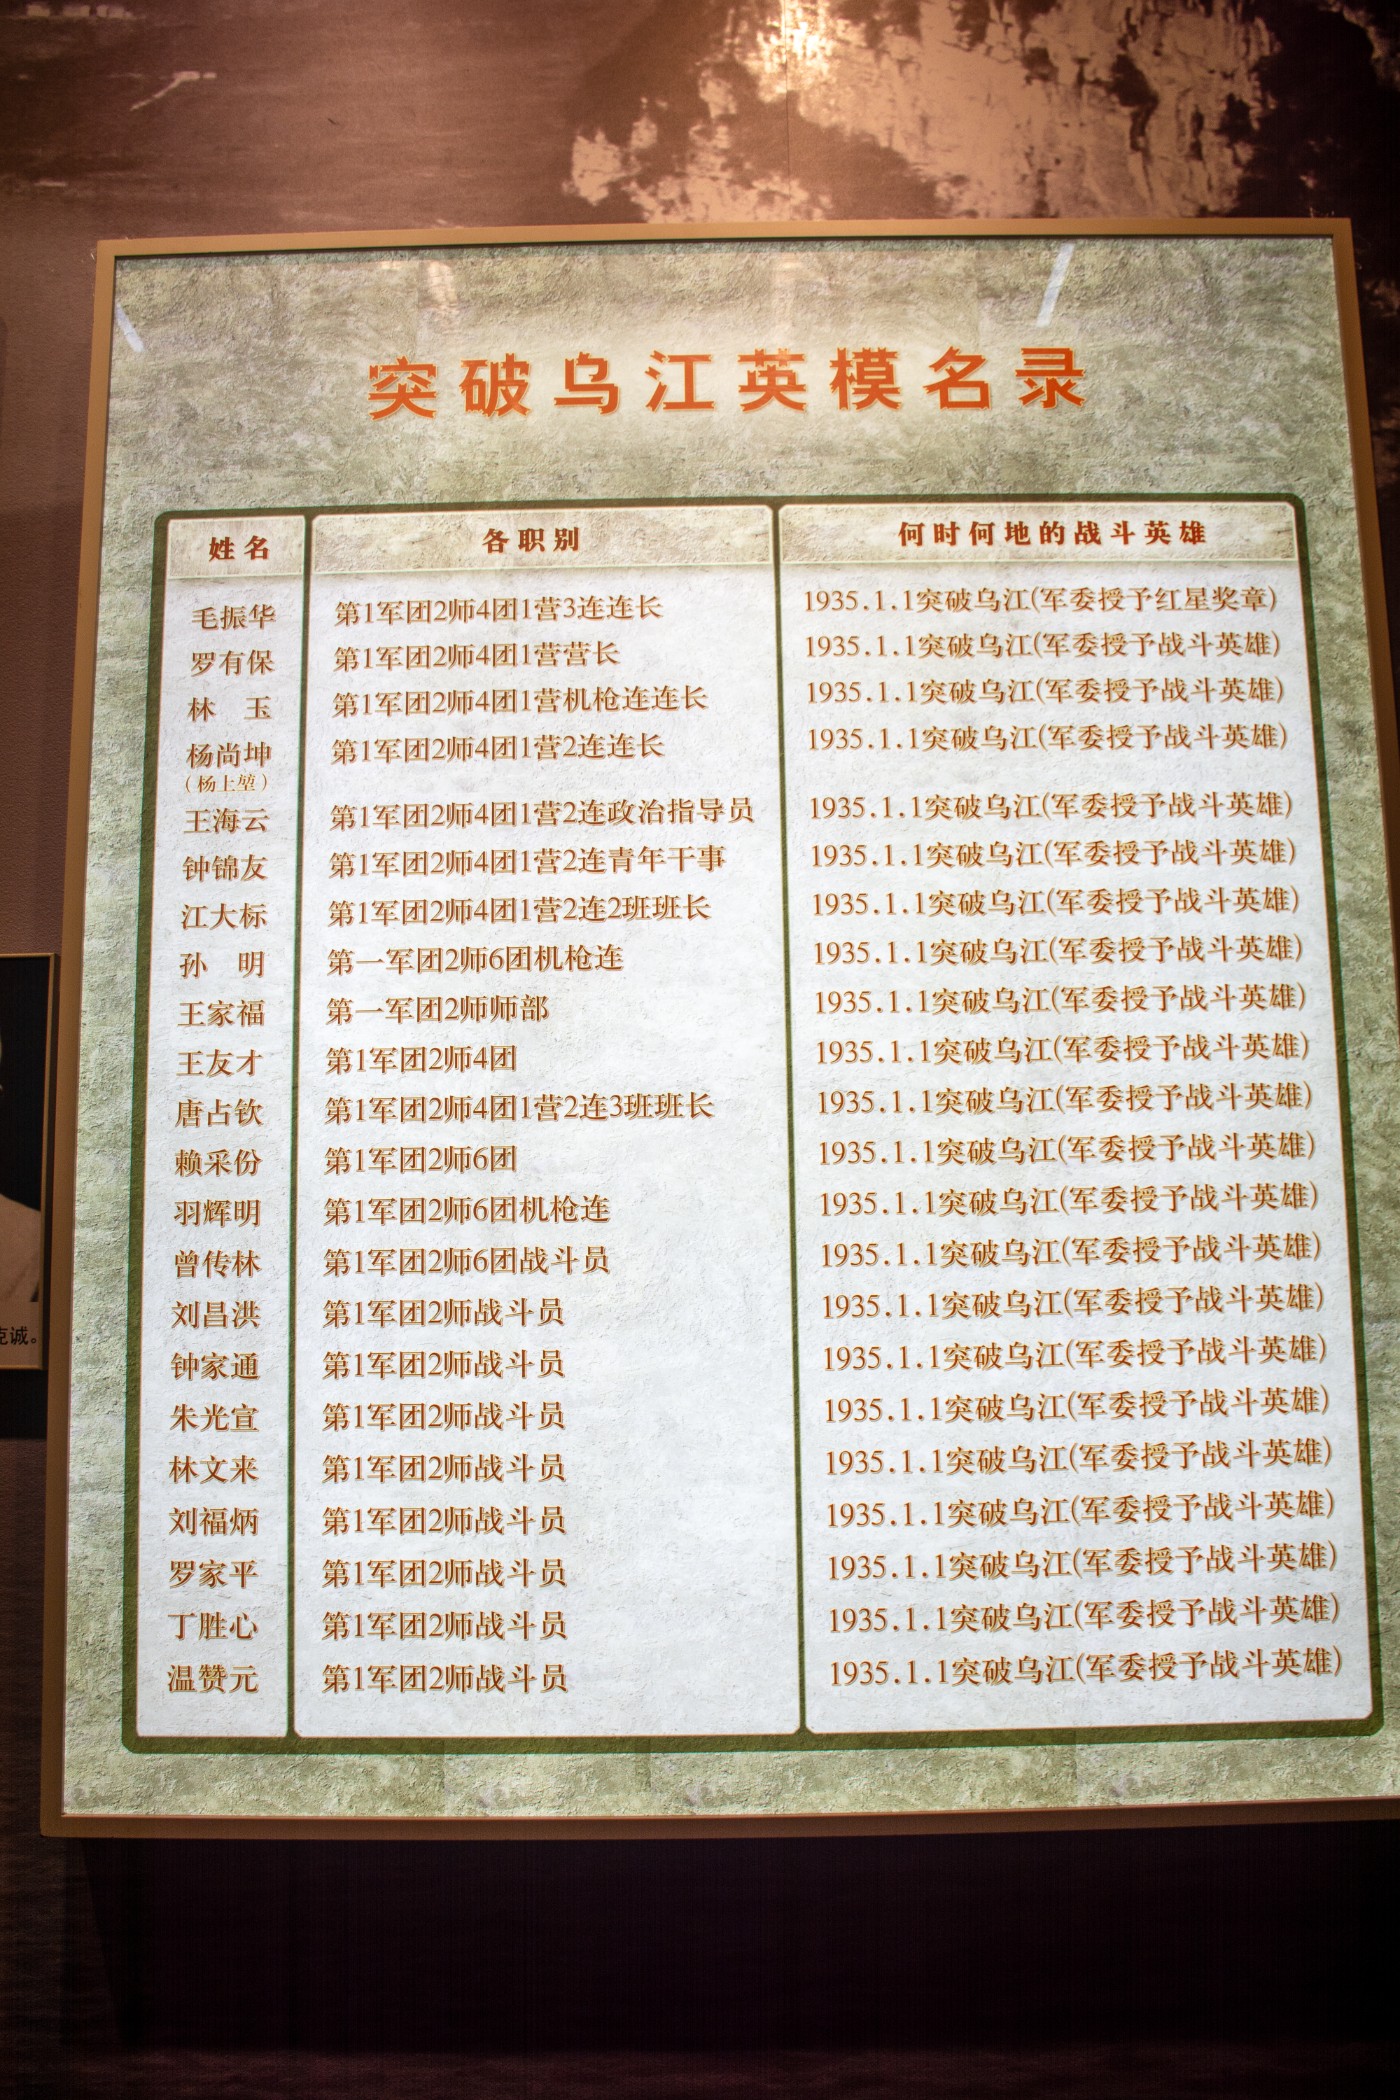 突破乌江英模名录
姓名 各职别 何时何地的战斗英雄
毛振华 第1军团2师4团1营3连连长 1935.1.1突破乌江(军委授予红星奖章)
罗有保 第1军团2师4团1营营长 1935.1.1突破乌江(军委授予战斗英雄)
林 玉 第1军团2师4团1营机枪连连长 1935.1.1突破乌江(军委授予战斗英雄)
杨尚坤 第1军团2师4团1营2连连长 1935.1.1突破乌江(军委授予战斗英雄)
(杨上堃)
王海云 第1军团2师4团1营2连政治指导员 1935.1.1突破乌江(军委授予战斗英雄)
钟锦友 第1军团2师4团1营2连青年干事 1935.1.1突破乌江(军委授予战斗英雄)
江大标 第1军团2师4团1营2连2班班长 1935.1.1突破乌江(军委授予战斗英雄)
孙 明 第一军团2师6团机枪连 1935.1.1突破乌江(军委授予战斗英雄)
王家福 第一军团2师师部 1935.1.1突破乌江(军委授予战斗英雄)
王友才 第1军团2师4团 1935.1.1突破乌江(军委授予战斗英雄)
唐占钦 第1军团2师4团1营2连3班班长 1935.1.1突破乌江(军委授予战斗英雄)
赖采份 第1军团2师6团 1935.1.1突破乌江(军委授予战斗英雄)
羽辉明 第1军团2师6团机枪连 1935.1.1突破乌江(军委授予战斗英雄)
曾传林 第1军团2师6团战斗员 1935.1.1突破乌江(军委授予战斗英雄)
刘昌洪 第1军团2师战斗员 1935.1.1突破乌江(军委授予战斗英雄)
钟家通 第1军团2师战斗员 1935.1.1突破乌江(军委授予战斗英雄)
朱光宣 第1军团2师战斗员 1935.1.1突破乌江(军委授予战斗英雄)
林文来 第1军团2师战斗员 1935.1.1突破乌江(军委授予战斗英雄)
刘福炳 第1军团2师战斗员 1935.1.1突破乌江(军委授予战斗英雄)
罗家平 第1军团2师战斗员 1935.1.1突破乌江(军委授予战斗英雄)
丁胜心 第1军团2师战斗员 1935.1.1突破乌江(军委授予战斗英雄)
温赞元 第1军团2师战斗员 1935.1.1突破乌江(军委授予战斗英雄)
克诚。